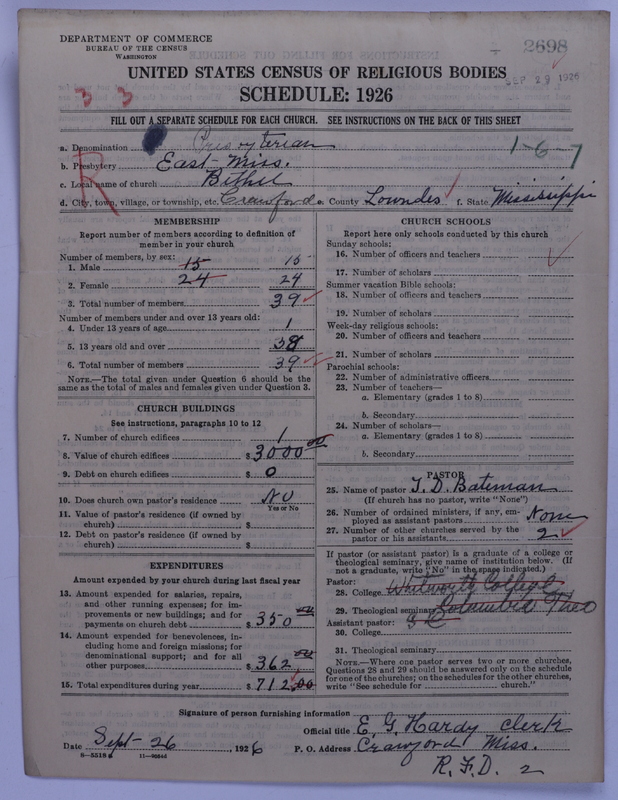 DEPARTMENT OF COMMERCE
BUREAU OF THE CENSUS
WASHINGTON
2698
SEP 29 1926
UNITED STATES CENSUS OF RELIGIOUS BODIES
SCHEDULE: 1926
3 3
FILL OUT A SEPARATE SCHEDULE FOR EACH CHURCH. SEE INSTRUCTIONS ON THE BACK OF THIS SHEET
R
a. Denomination Presbyterian
1-6-7
b. Presbytery East Miss.
c. Local name of church Bethel
d. City, town, village, or township, etc. Crawford e. County Lowndes f. State Mississippi
MEMBERSHIP
Report number of members according to definition of member in your church
Number of members, by sex:
1. Male 15 15
2. Female 24 24
3. Total number of members 39
Number of members under and over 13 years old:
4. Under 13 years of age 1
5. 13 years old and over 38
6. Total number of members 39
NOTE.—The total given under Question 6 should be
same as the total of males and females given under Question 3.
CHURCH BUILDINGS
See instructions, paragraphs 10 to 12
7. Number of church edifices 1
8. Value of church edifices $ 3000.00
9. Debt on church edifices $ 0
10. Does church own pastor's residence No
Yes or No
11. Value of pastor's residence (if owned by
church) $
12. Debt on pastor's residence (if owned by
church) $
EXPENDITURES
Amount expended by your church during last fiscal year
13. Amount expended for salaries, repairs,
and other running expenses; for im-
provements or new buildings; and for
payments on church debt $ 350 00
14. Amount expended for benevolences, in-
cluding home and foreign missions; for
denominational support; and for all
other purposes $ 362 00
15. Total expenditures during year $ 712.00
CHURCH SCHOOLS
Report here only schools conducted by this church
Sunday schools:
16. Number of officers and teachers
17. Number of scholars
Summer vacation Bible schools:
18. Number of officers and teachers
19. Number of scholars
Week-day religious schools:
20. Number of officers and teachers
21. Number of scholars
Parochial schools:
22. Number of administrative officers
23. Number of teachers—
a. Elementary (grades 1 to 8)
b. Secondary
24. Number of scholars—
a. Elementary (grades 1 to 8)
b. Secondary
PASTOR
25. Name of pastor T. D. Bateman
(If church has no pastor, write "None")
26. Number of ordained ministers, if any, em-
ployed as assistant pastors None
27. Number of other churches served by the
pastor or his assistants 2
If pastor (or assistant pastor) is a graduate of a college or
theological seminary, give name of institution below. (If
not a graduate, write "No" in the space indicated.)
Pastor:
28. College Whitworth College
29. Theological seminary Columbia Theo
Assistant pastor: S C
30. College
31. Theological seminary
NOTE.—Where one pastor serves two or more churches,
Questions 28 and 29 should be answered only on the schedule
for one of the churches; on the schedules for the other churches,
write "See schedule for church."
Signature of person furnishing information
Official title E. G. Hardy Clerk
Date Sept-26, 1926 P. O. Address Crawford Miss.
R. F. D. 2
8-5518a 11-